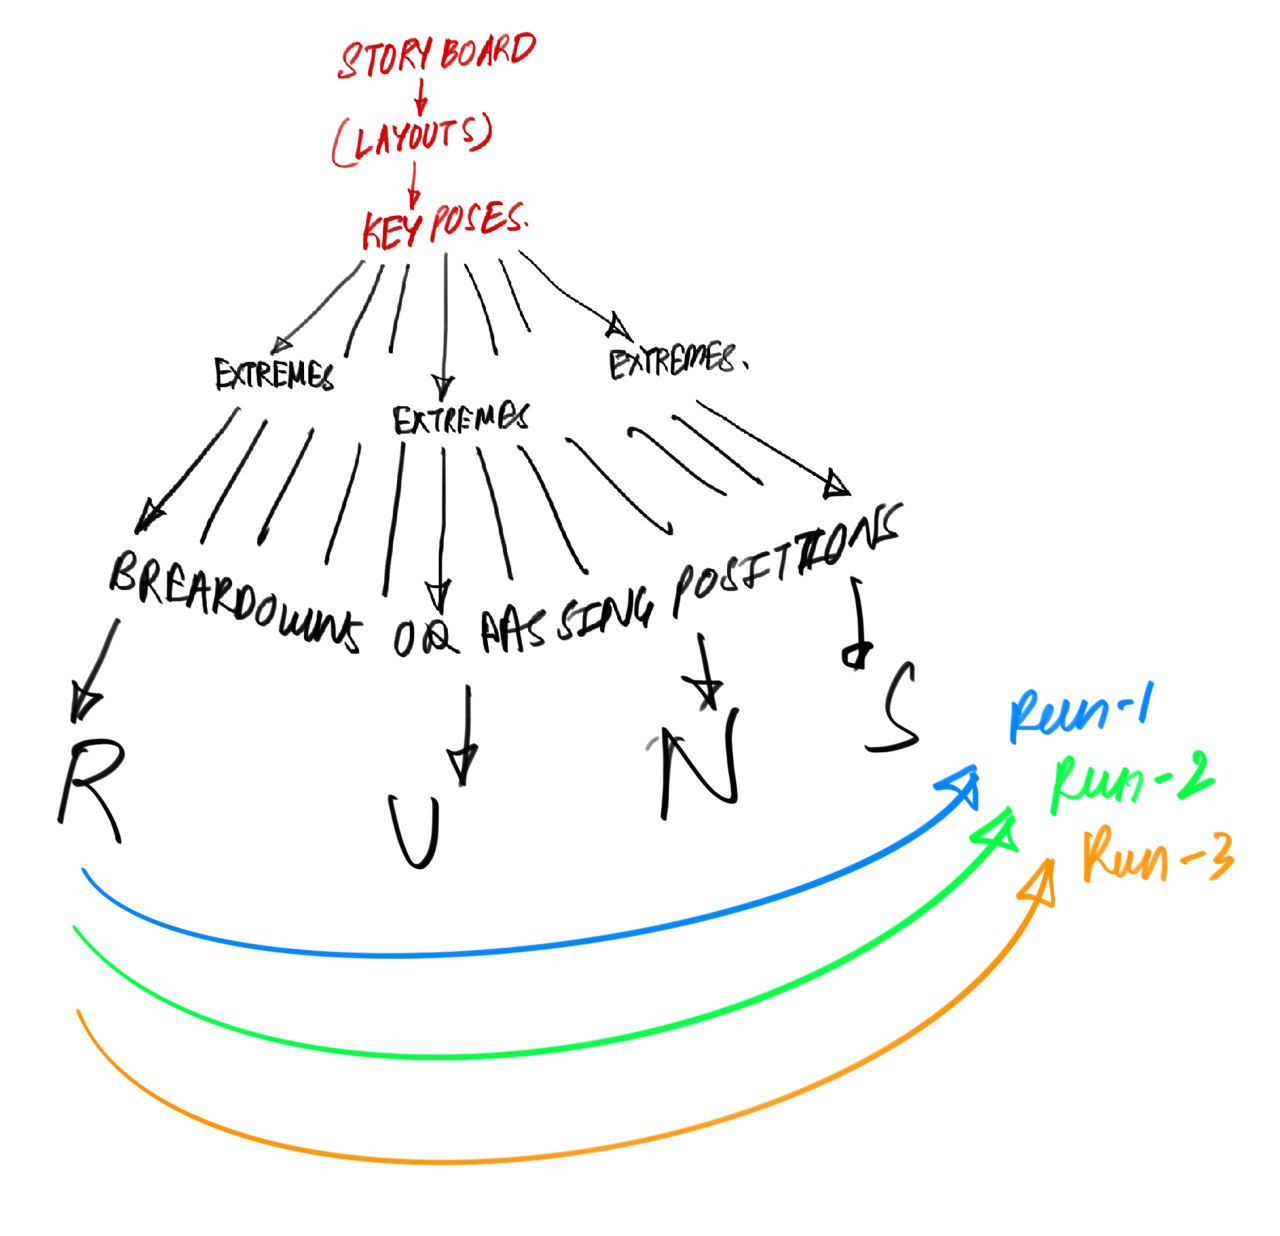 STORY BOARD
(LAYOUTS)
KEY POSES.
EXTREMES
EXTREMES.
EXTREMES
BREARDOWNS OR PASSING POSITIONS
R U N S
Run-1
Run-2
Run-3